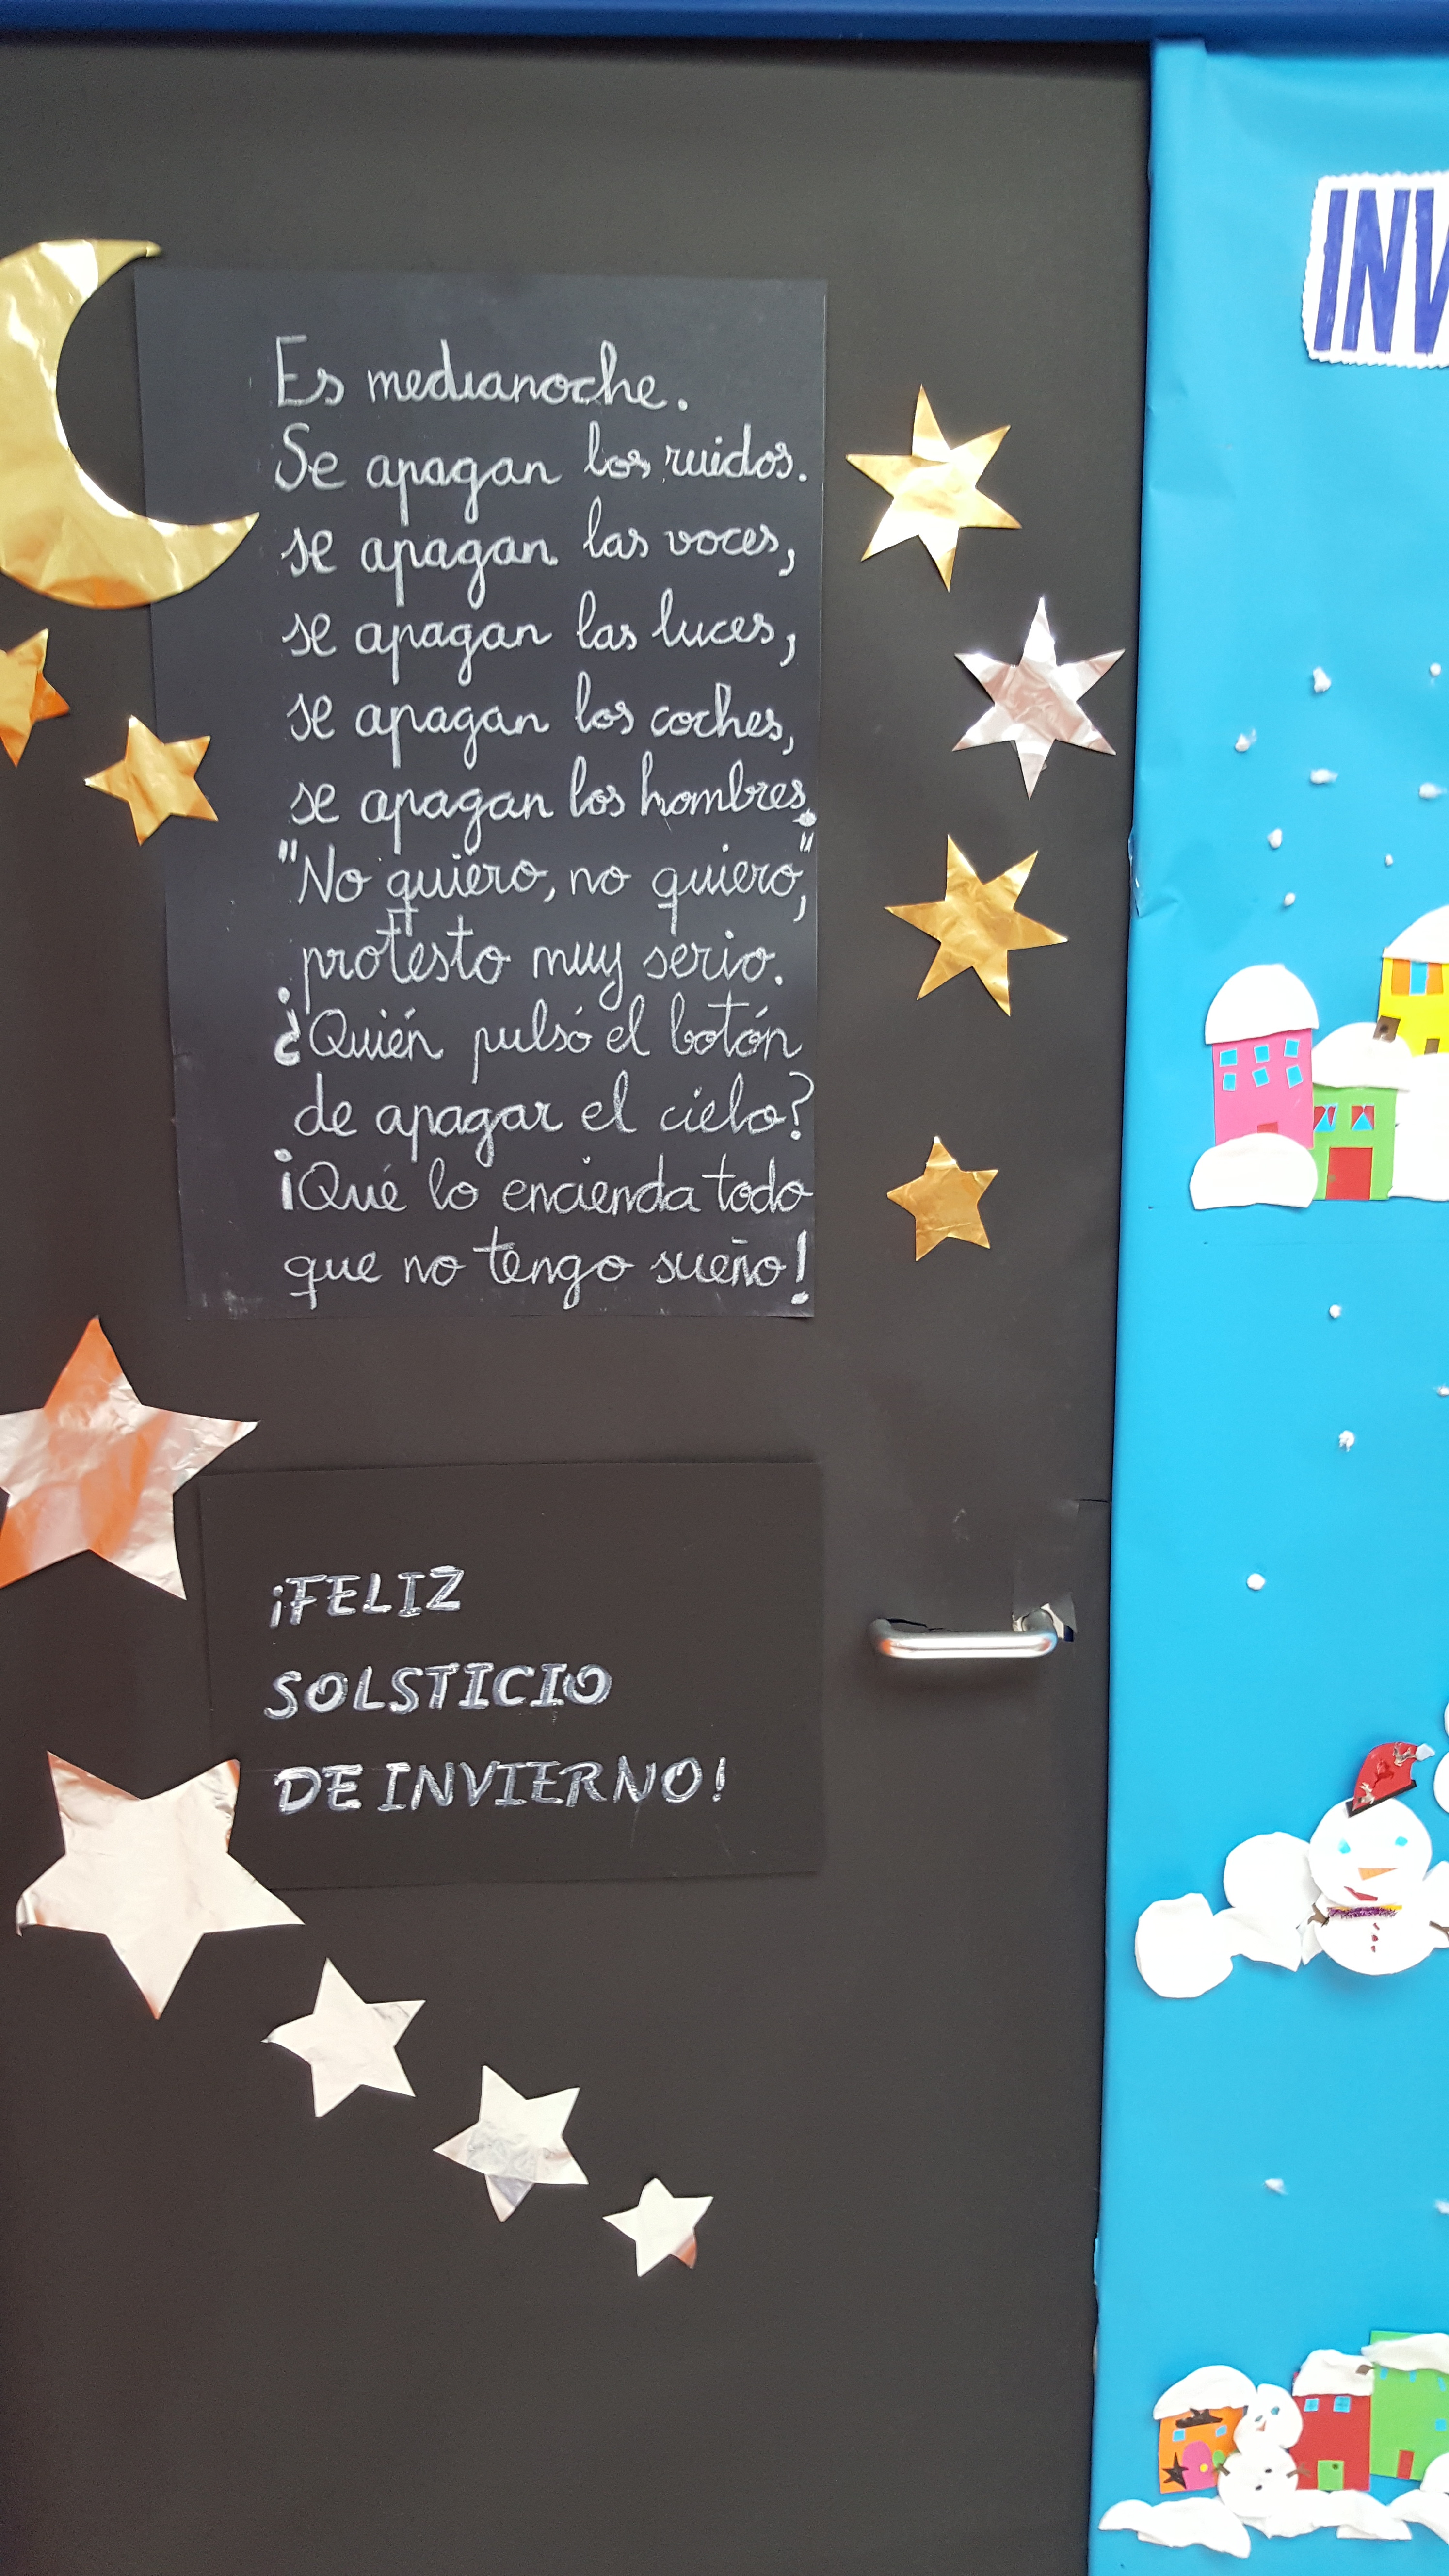 Es medianoche.
Se apagan los ruidos.
se apagan las voces,
se apagan las luces,
se apagan los coches,
se apagan los hombres.
"No quiero, no quiero",
protesto muy serio.
¿Quién pulsó el botón
de apagar el cielo?
¡Qué lo encienda todo
que no tengo sueño!
¡FELIZ
SOLSTICIO
DE INVIERNO!
INV